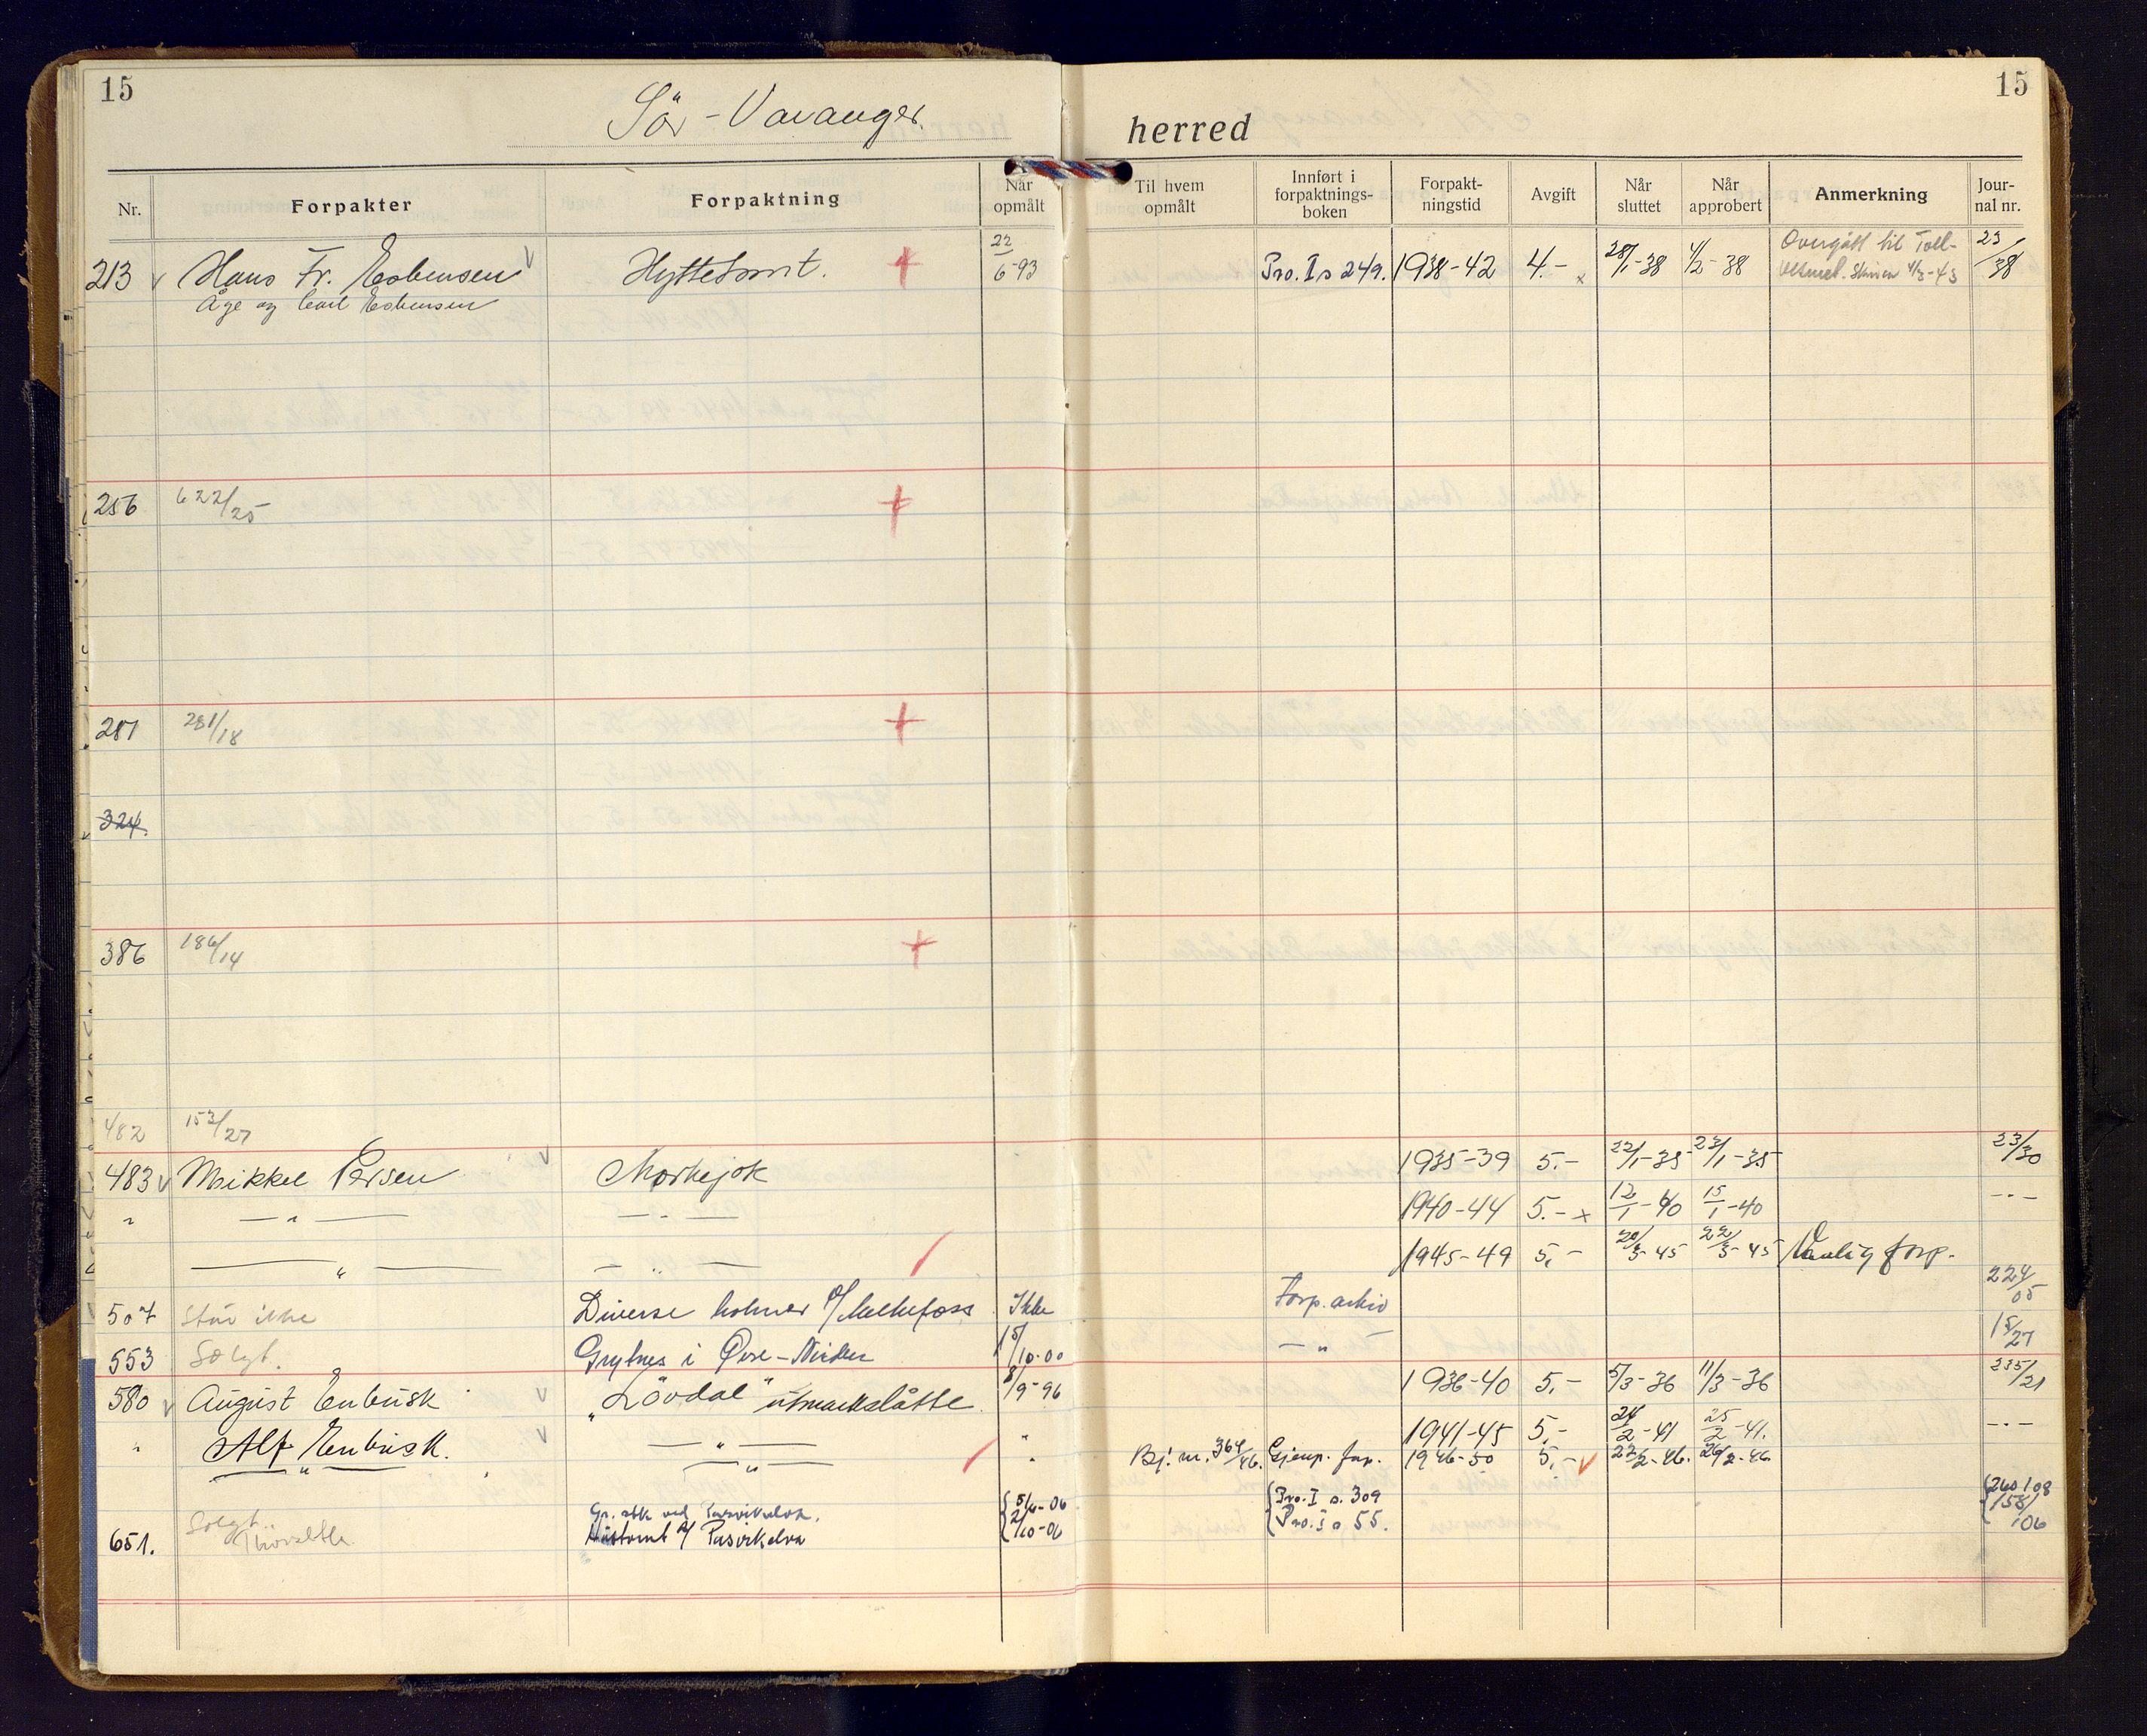 15
15
Sör-Varanger herred
Nr. Forpakter Forpaktning Når opmålt Til hvem opmålt Innført i forpaktnings-boken Forpakt-ningstid Avgift Når sluttet Når approbert Anmerkning Jour-nal nr.
213 Hans Fr. Esbensen Hyttetomt. + 22/6-93 Pro. I s 249. 1938-42 4.- x 28/1-38 4/2-38 Overgått til 23/38
Åge og Carl Esbensen
256 622/25 +
287 281/18 +
324.
386 186/14 +
482 153/27
483 Mikkel Persen 1935-39 5.- 22/1-35 23/1-35 23/30
" — " — — " — 1940-44 5.- x 12/1-40 15/1-40 - " -
— " — — " — 1945-49 5,- 20/3-45 22/3-45 Vanlig forp.
507 Står ikke Diverse holmer v/ Melkefoss Ikke Forp. arkiv 224/05
553 Solgt. Grytnes i 15/10-00 — " — 15/27
580 August Enbusk "Lövdal" utmarkslåtte 8/9-96 1936-40 5.- 5/3-36 11/3-36 235/21
" Alf Enbusk. — " — " 1941-45 5,- 24/2-41 25/2-41. - " -
— " — — " — " Bj. nr. 364/46. Gjenp. forp. 1946-50 5,- 22/2-46. 26/2-46
Solgt. Gr. stk ved Pasvikelva. 5/6-06 Pro. I s. 309 260/08
651. Hustomt v/ Pasvikelva 2/10-06 Pro. I s 55. 158/06